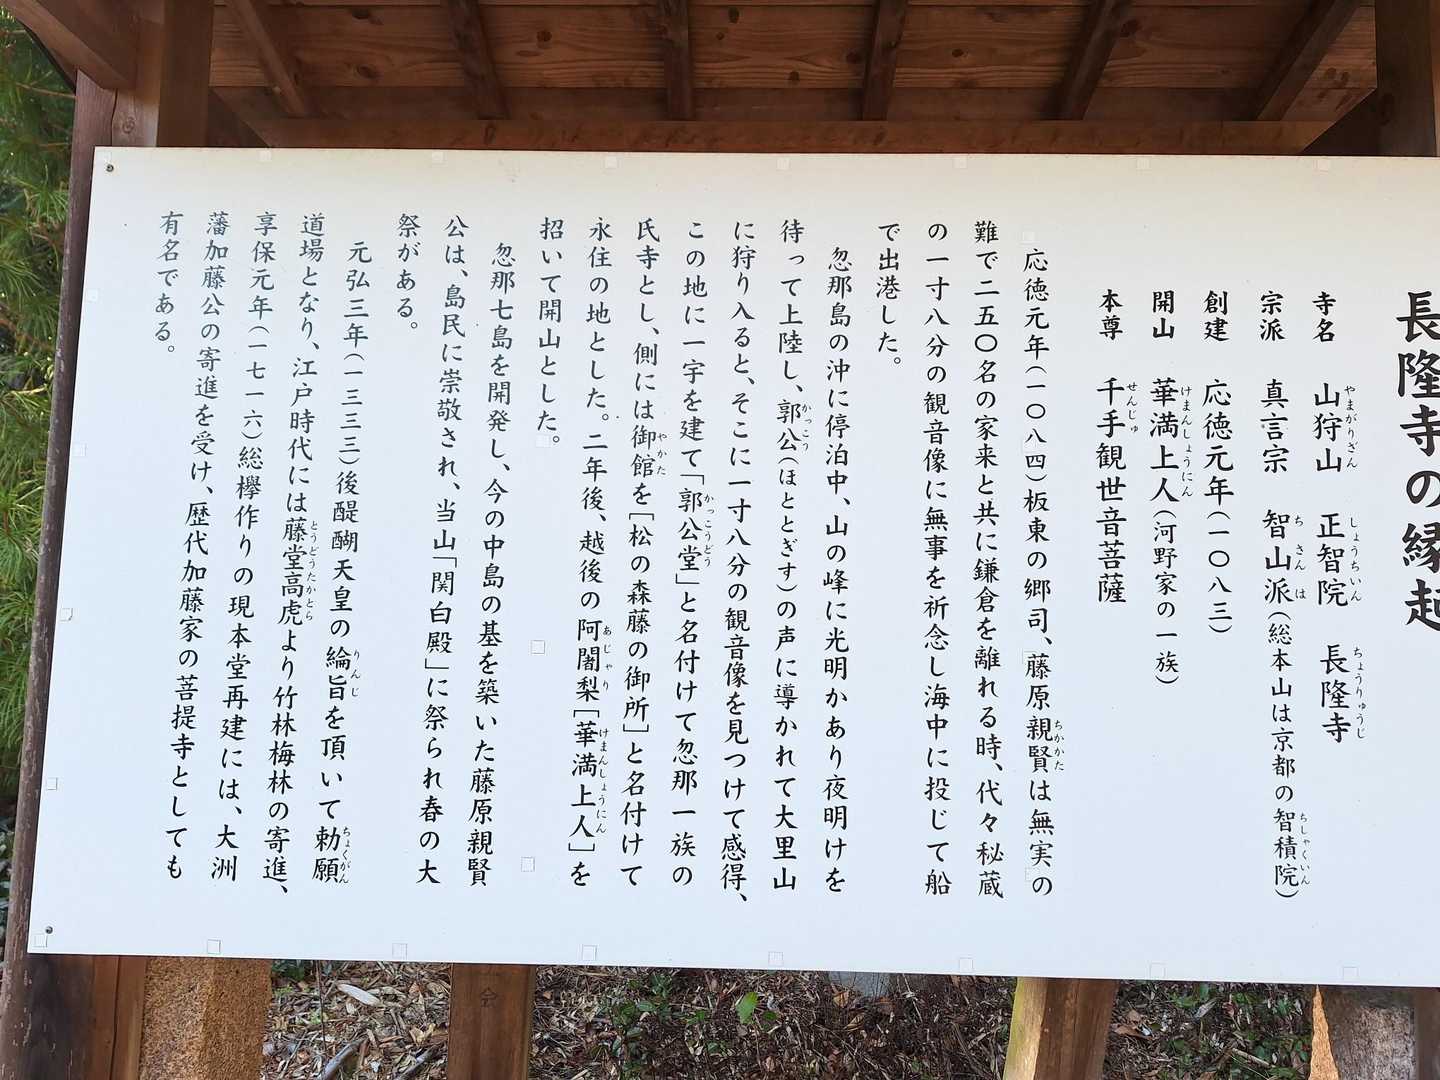 長隆寺の縁起
寺名　山狩山　正智院　長隆寺
やまがりざん　しょうちいん　ちょうりゅうじ
宗派　真言宗　智山派(総本山は京都の智積院)
ちさんは　ちしゃくいん
創建　応徳元年(一〇八三)
開山　華満上人(河野家の一族)
けまんしょうにん
本尊　千手観世音菩薩
せんじゅ
応徳元年(一〇八四)板東の郷司、藤原親賢は無実の
ちかかた
難で二五〇名の家来と共に鎌倉を離れる時、代々秘蔵
の一寸八分の観音像に無事を祈念し海中に投じて船
で出港した。
忽那島の沖に停泊中、山の峰に光明かあり夜明けを
待って上陸し、郭公(ほととぎす)の声に導かれて大里山
かっこう
に狩り入ると、そこに一寸八分の観音像を見つけて感得、
この地に一宇を建て「郭公堂」と名付けて忽那一族の
かっこうどう
氏寺とし、側には御館を[松の森藤の御所]と名付けて
やかた
永住の地とした。二年後、越後の阿闍梨[華満上人]を
あじゃり　けまんしょうにん
招いて開山とした。
忽那七島を開発し、今の中島の基を築いた藤原親賢
公は、島民に崇敬され、当山「関白殿」に祭られ春の大
祭がある。
元弘三年(一三三三)後醍醐天皇の綸旨を頂いて勅願
りんじ　ちょくがん
道場となり、江戸時代には藤堂高虎より竹林梅林の寄進、
とうどうたかとら
享保元年(一七一六)総欅作りの現本堂再建には、大洲
藩加藤公の寄進を受け、歴代加藤家の菩提寺としても
有名である。